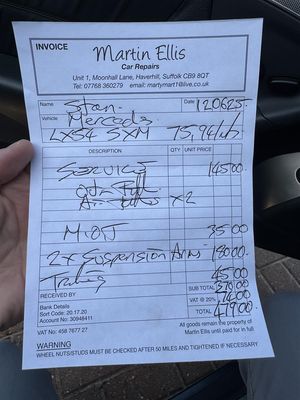 INVOICE
Martin Ellis
Car Repairs
Unit 1, Moonhall Lane, Haverhill, Suffolk CB9 8QT
Tel: 07768 360279 email: martymart1@live.co.uk
Name Stan Date 120625
Vehicle Mercedes
LX54 SXM 75,946
DESCRIPTION QTY UNIT PRICE
SERVICE 145.00
Oil Fill
Air x2
M.O.T 35.00
2x Suspension Arms 180.00
45.00
RECEIVED BY
SUB TOTAL
Bank Details VAT @ 20% 74.00
Sort Code: 20.17.20
Account No: 30946411 TOTAL 479.00
VAT No: 458 7677 27
All goods remain the property of
Martin Ellis until paid for in full
WARNING
WHEEL NUTS/STUDS MUST BE CHECKED AFTER 50 MILES AND TIGHTENED IF NECESSARY